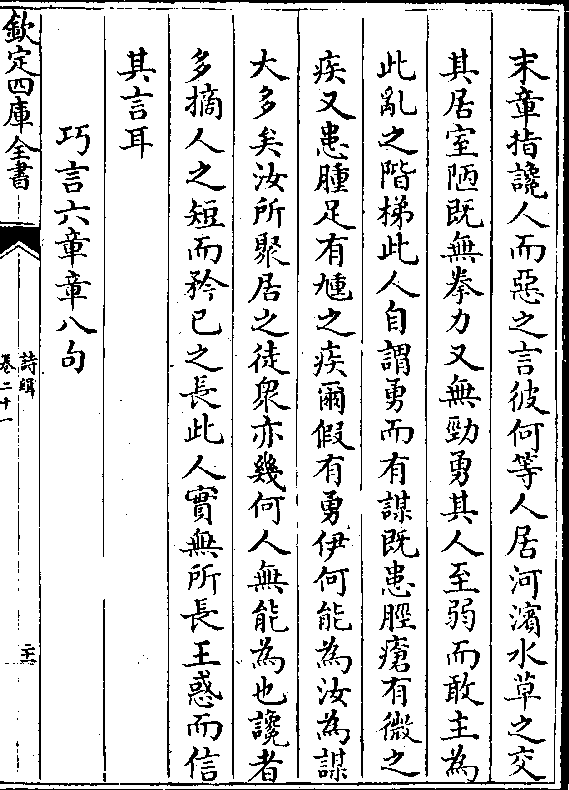 末章指讒人而惡之言彼何等人居河濱水草之交
其居室陋既無拳力又無勁勇其人至弱而敢主為
此亂之階梯此人自謂勇而有謀既患脛瘡有微之
疾又患腫足有尰之疾爾假有勇伊何能為汝為謀
大多矣汝所聚居之徒衆亦幾何人無能為也讒者
多摘人之短而矜已之長此人實無所長王惑而信
其言耳
巧言六章章八句
欽定四庫全書
詩緝
卷二十一